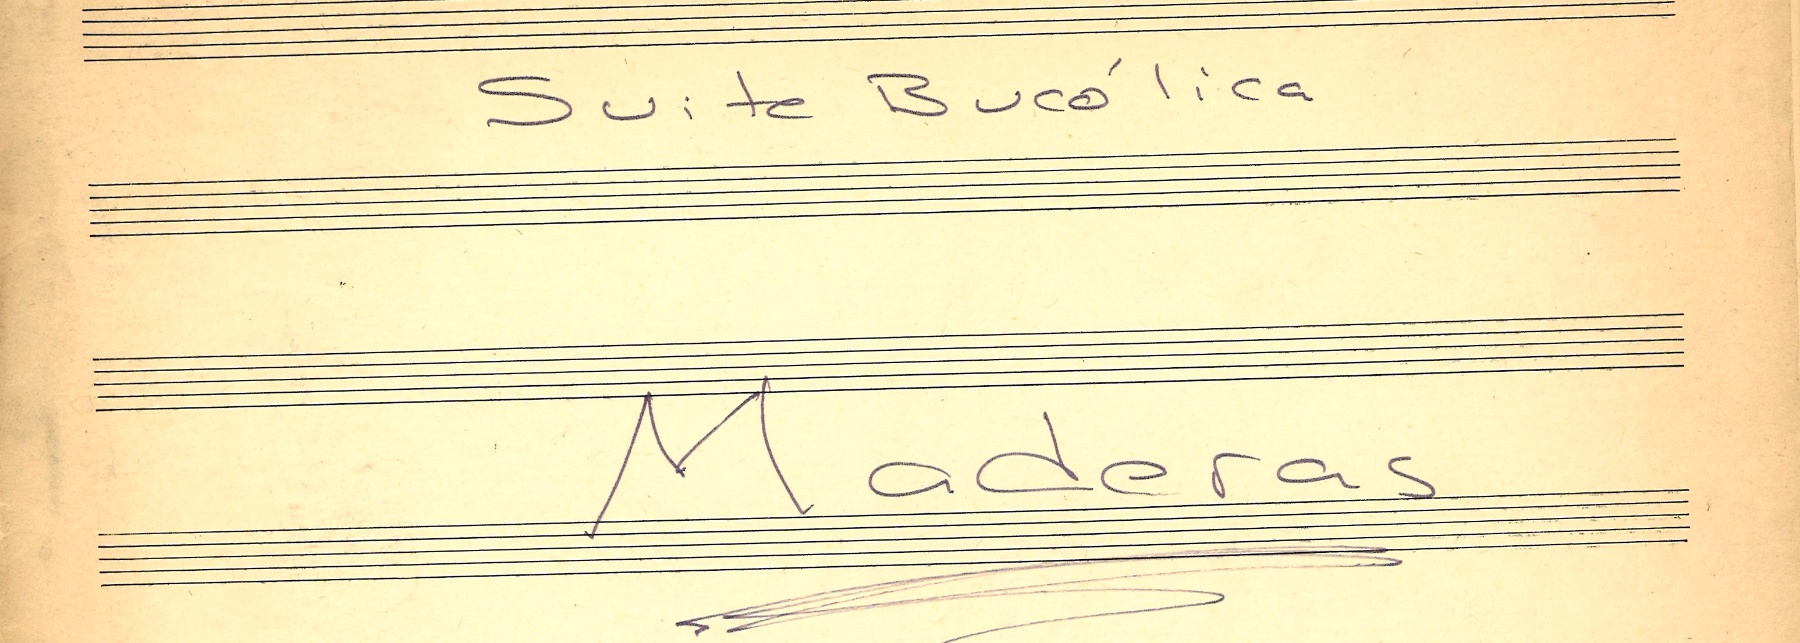 Suite Bucólica
Maderas